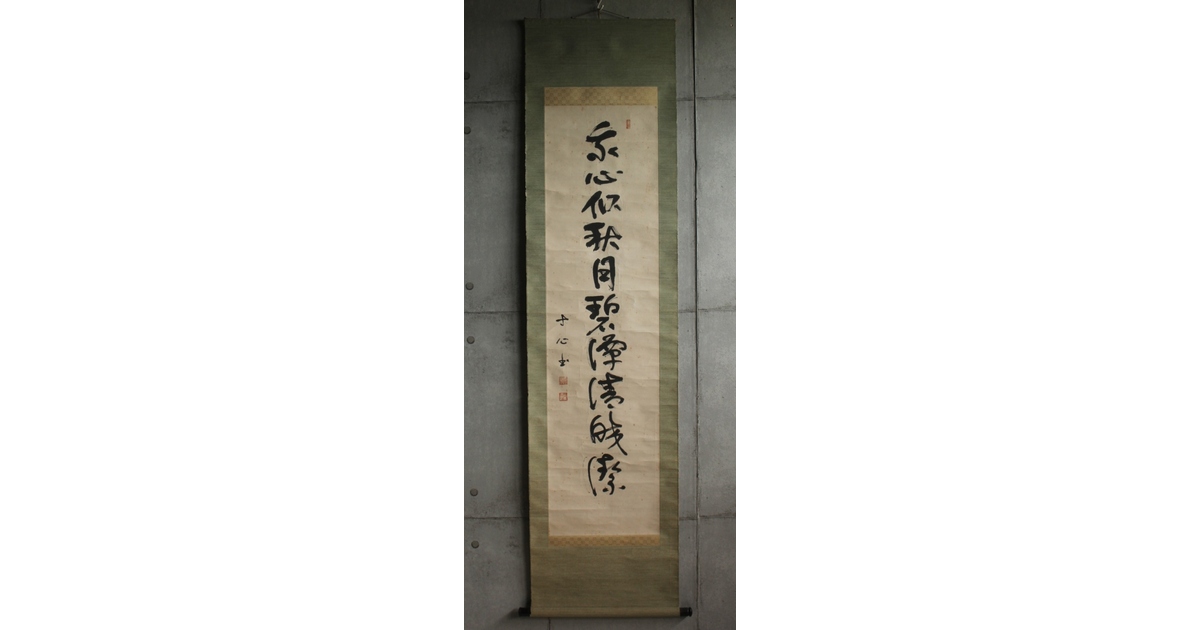 我心似秋月碧潭清皎潔
心書